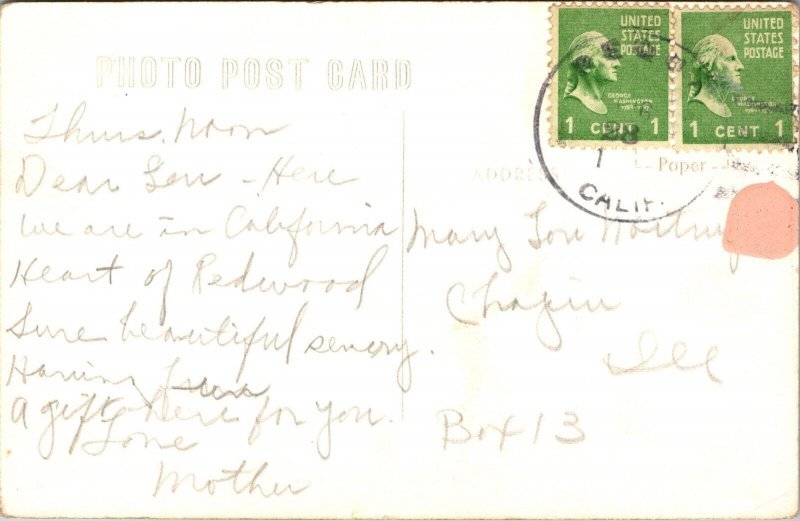 PHOTO POST CARD
UNITED STATES POSTAGE
GEORGE WASHINGTON
1789-1797
1 CENT 1
UNITED STATES POSTAGE
GEORGE WASHINGTON
1789-1797
1 CENT 1
28
1
CALIF.
ADDRESS
Paper
Thurs. Noon
Dear Lou - Here
we are in California
Heart of Redwood
Sure beautiful senery.
Having fun
a gift here for you.
Love
Mother
Mary Lou
Chapin
Ill
Box 13